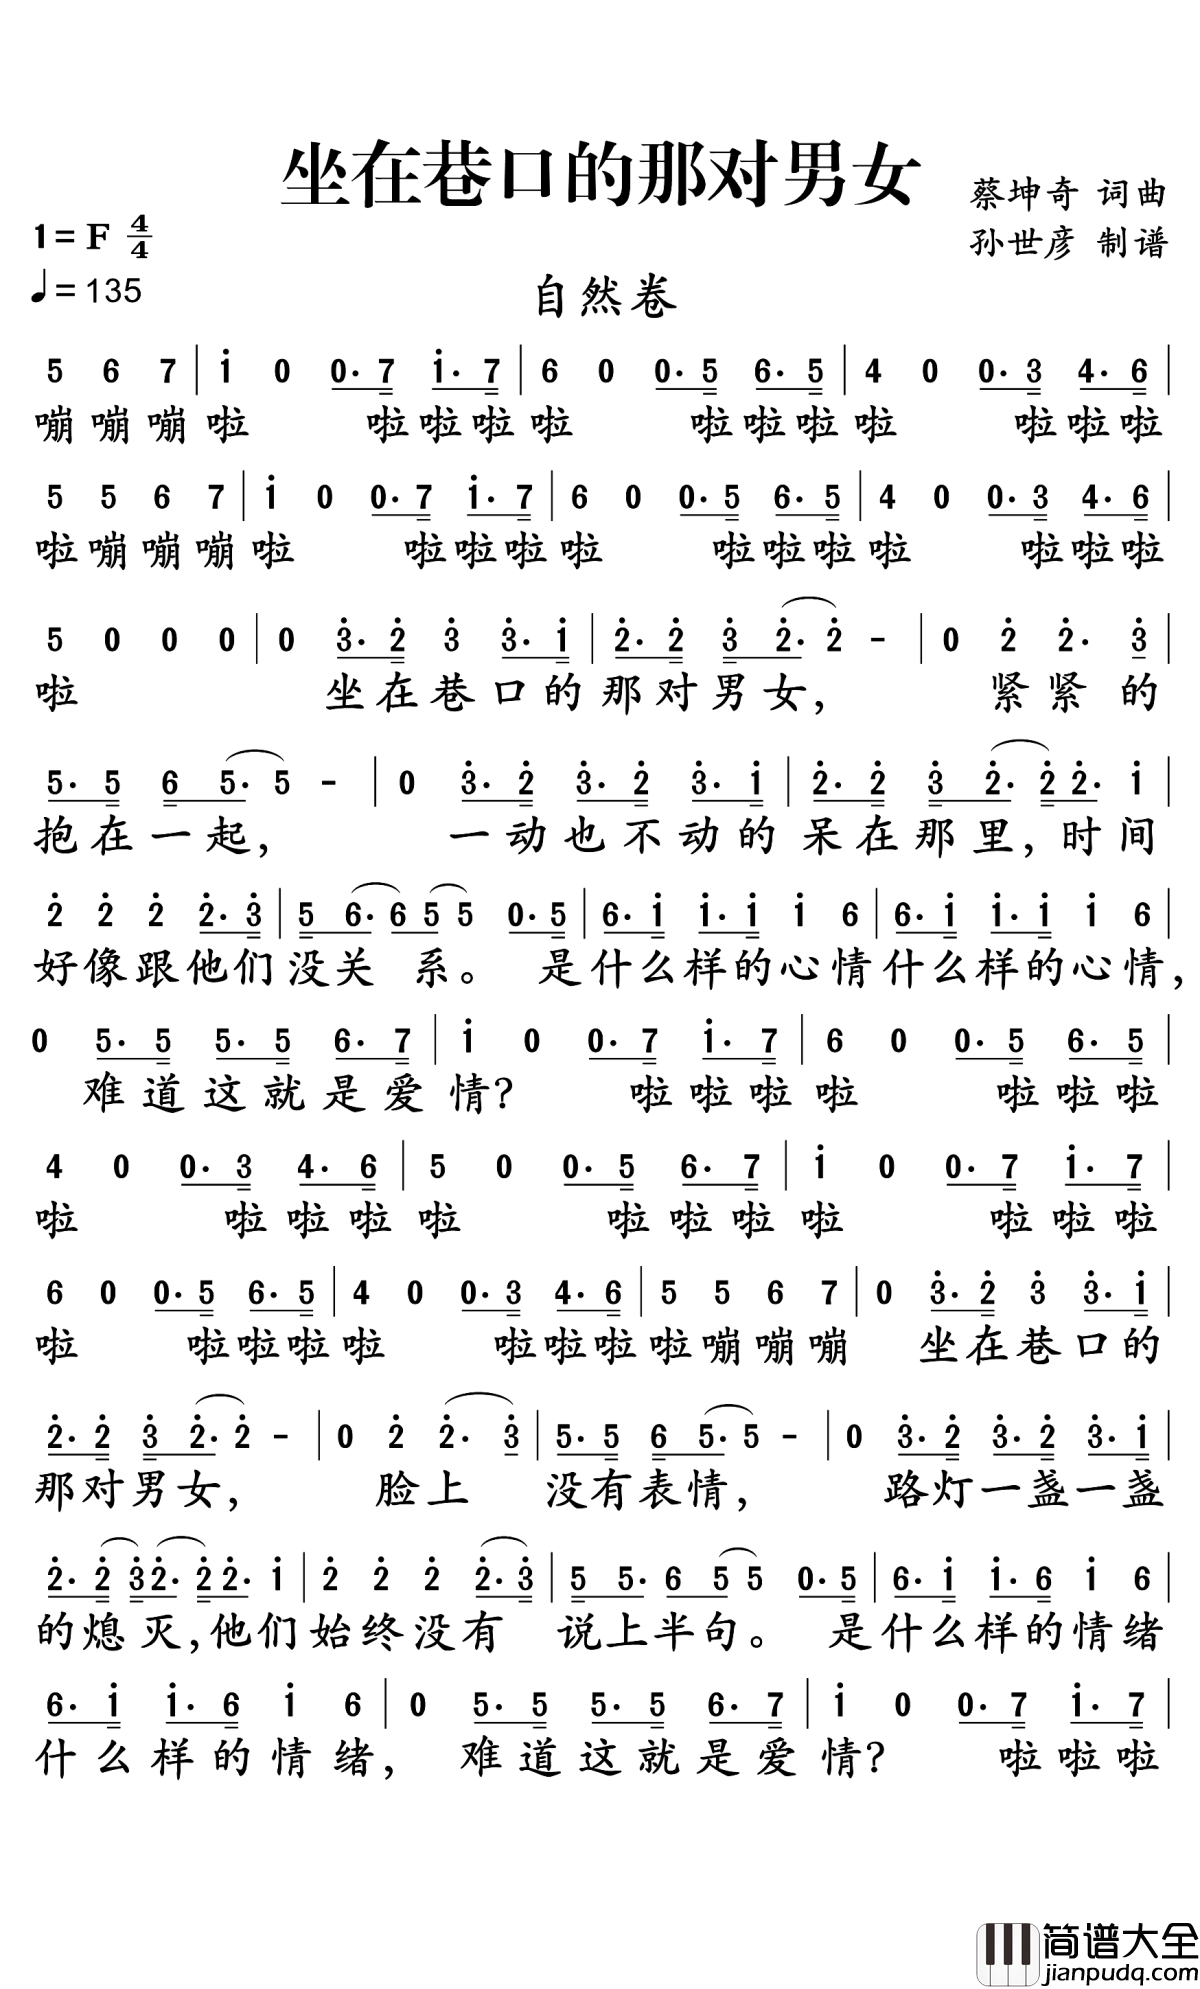 坐在巷口的那对男女
蔡坤奇 词曲
1=F 4/4
孙世彦 制谱
♩=135
自然卷
5 6 7 | i 0 0· 7 i· 7 | 6 0 0· 5 6· 5 | 4 0 0· 3 4· 6 |
嘣嘣嘣啦 啦啦啦啦 啦啦啦啦 啦啦啦
5 5 6 7 | i 0 0· 7 i· 7 | 6 0 0· 5 6· 5 | 4 0 0· 3 4· 6 |
啦嘣嘣嘣啦 啦啦啦啦 啦啦啦啦 啦啦啦
5 0 0 0 | 0 3̇· 2̇ 3̇ 3̇· i | 2̇· 2̇ 3̇ 2̇· 2̇ - | 0 2̇ 2̇· 3̇ |
啦 坐在巷口的那对男女， 紧紧的
5· 5 6 5· 5 - | 0 3̇· 2̇ 3̇· 2̇ 3̇· i | 2̇· 2̇ 3̇ 2̇· 2̇ 2̇· i |
抱在一起， 一动也不动的呆在那里，时间
2̇ 2̇ 2̇ 2̇· 3̇ | 5 6· 6 5 5 0· 5 | 6· i i· i i 6 | 6· i i· i i 6 |
好像跟他们没关 系。 是什么样的心情什么样的心情，
0 5· 5 5· 5 6· 7 | i 0 0· 7 i· 7 | 6 0 0· 5 6· 5 |
难道这就是爱情？ 啦啦啦啦 啦啦啦
4 0 0· 3 4· 6 | 5 0 0· 5 6· 7 | i 0 0· 7 i· 7 |
啦 啦啦啦啦 啦啦啦啦 啦啦啦
6 0 0· 5 6· 5 | 4 0 0· 3 4· 6 | 5 5 6 7 | 0 3̇· 2̇ 3̇ 3̇· i |
啦 啦啦啦啦 啦啦啦啦嘣嘣嘣 坐在巷口的
2̇· 2̇ 3̇ 2̇· 2̇ - | 0 2̇ 2̇· 3̇ | 5· 5 6 5· 5 - | 0 3̇· 2̇ 3̇· 2̇ 3̇· i |
那对男女， 脸上 没有表情， 路灯一盏一盏
2̇· 2̇ 3̇ 2̇· 2̇ 2̇· i | 2̇ 2̇ 2̇ 2̇· 3̇ | 5 5· 6 5 5 0· 5 | 6· i i· 6 i 6 |
的熄灭，他们始终没有 说上半句。 是什么样的情绪
6· i i· 6 i 6 | 0 5· 5 5· 5 6· 7 | i 0 0· 7 i· 7 |
什么样的情绪， 难道这就是爱情？ 啦啦啦
简谱大全
jianpudq.com